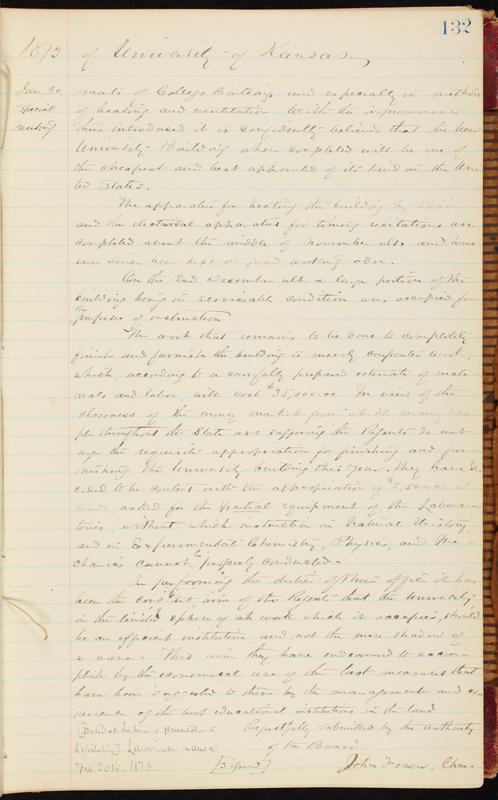 132
1873 of University of Kansas,
Jan. 30, ments of College Buildings and especially in methods
special of heating and ventilation. With the improvements
meeting thus introduced it is confidently believed that the new
University Building when completed will be one of
the cheapest and best appointed of its kind in the Uni-
ted States.
The apparatus for heating the building by steam
and the electrical apparatus for timing recitations were
completed about the middle of November ult. and have
ever since been kept in good working order.
On the 2nd December ult. a large portion of the
building being in serviceable condition was occupied for
the purposes of instruction
The work that remains to be done to completely
finish and furnish the building is merely carpenter work,
which, according to a carefully prepared estimate of mate-
rials and labor, will cost In view of the
closeness of the money market from which many peo-
ple throughout the State are suffering the Regents do not
urge the requisite appropriation for finishing and fur-
nishing the University building this year. They have de-
cided to be content with the appropriation of
asked for the partial equipment of the Labora-
tories, without which instruction in Natural History,
and in Experimental Chemistry, Physics, and Me-
chanics cannot be properly conducted.
In performing the duties of their office it has
been the constant aim of the Regents that the University
in the limited sphere of work which it occupies, should
be an efficient institution and not the mere shadow of
a name. This aim they have endeavored to accom-
plish by the economical use of the best measures that
have been suggested to them by the management and ex-
perience of the best educational institutions in the land
Respectfully submitted by the authority
Lawrence Kansas of the Board
Feb. 20th, 1873. [Signed] John Fraser, Chan.